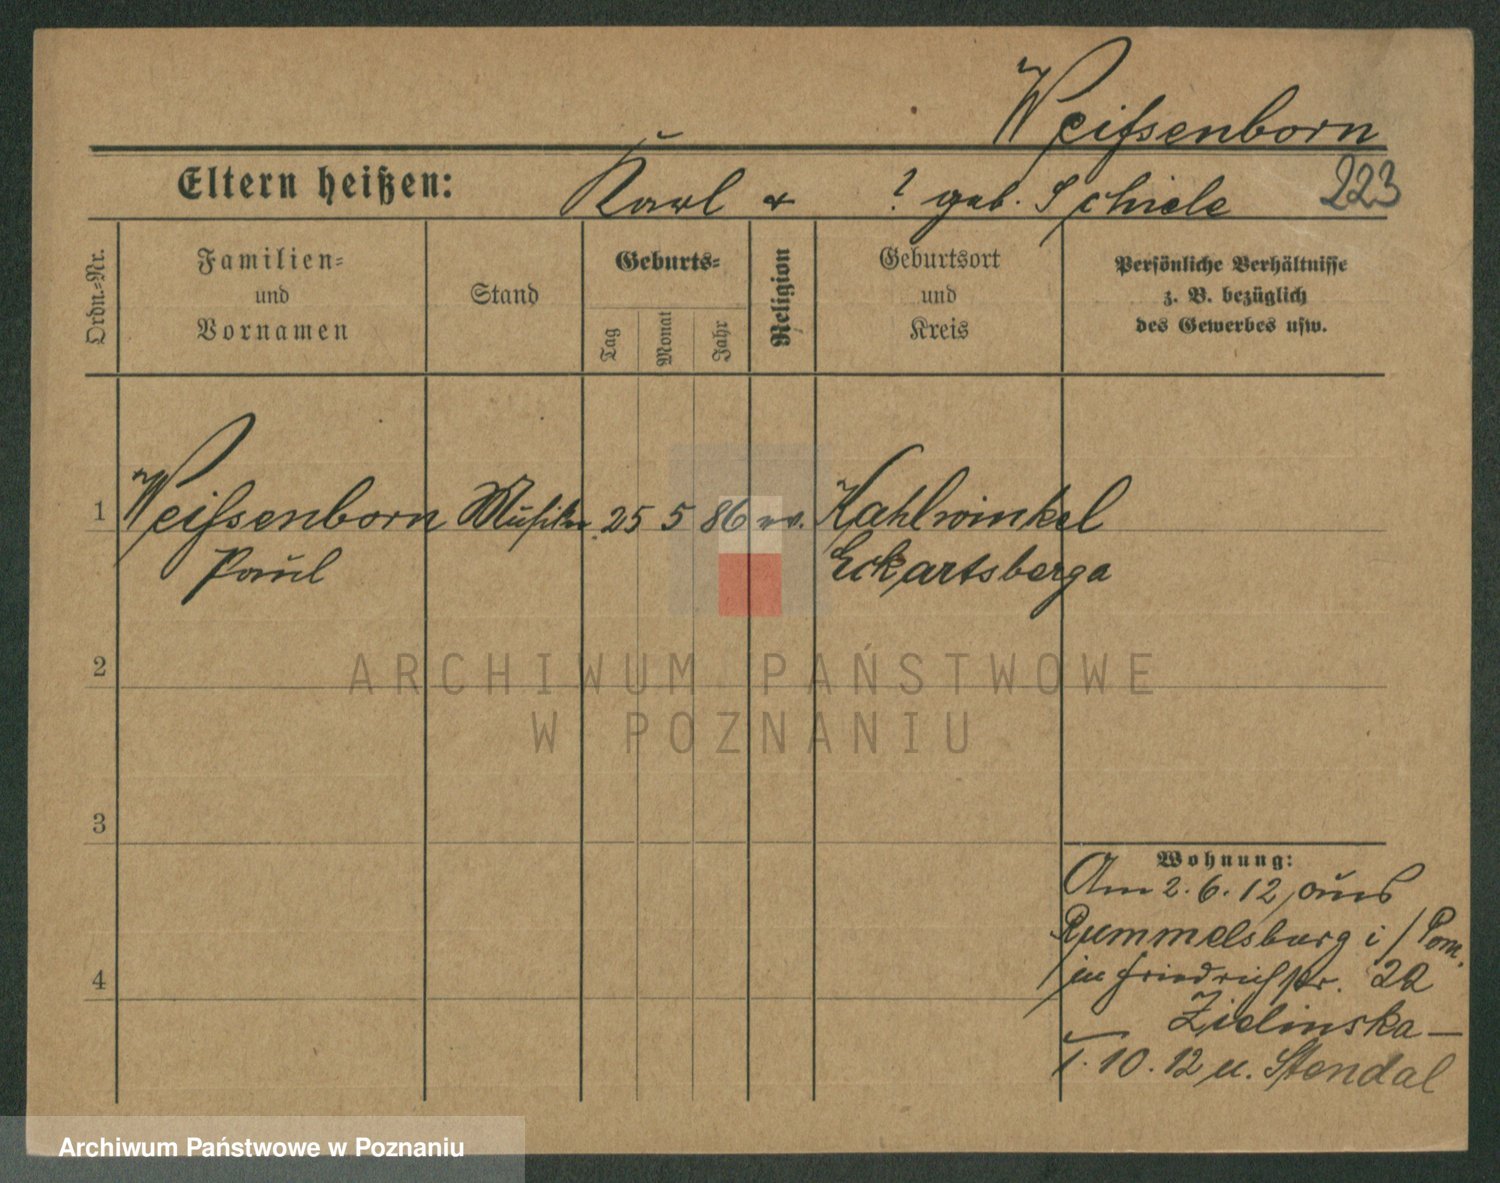 Weißenborn
Eltern heißen: Karl & ? geb. Schiele 223
Ordn.-Nr.
Familien- und Vornamen
Stand
Geburts-
Tag
Monat
Jahr
Religion
Geburtsort und Kreis
Persönliche Verhältnisse
z. B. bezüglich
des Gewerbes usw.
1 Weißenborn Musiker 25 5 86 ev. Kahlwinkel
Paul Eckartsberga
2
ARCHIWUM PAŃSTWOWE
W POZNANIU
3
Wohnung:
Am 2.6.12 aus
Rummelsburg i/Pom.
in Friedrichstr. 2a
4
Zielinska —
1.10.12 n. Stendal
Archiwum Państwowe w Poznaniu